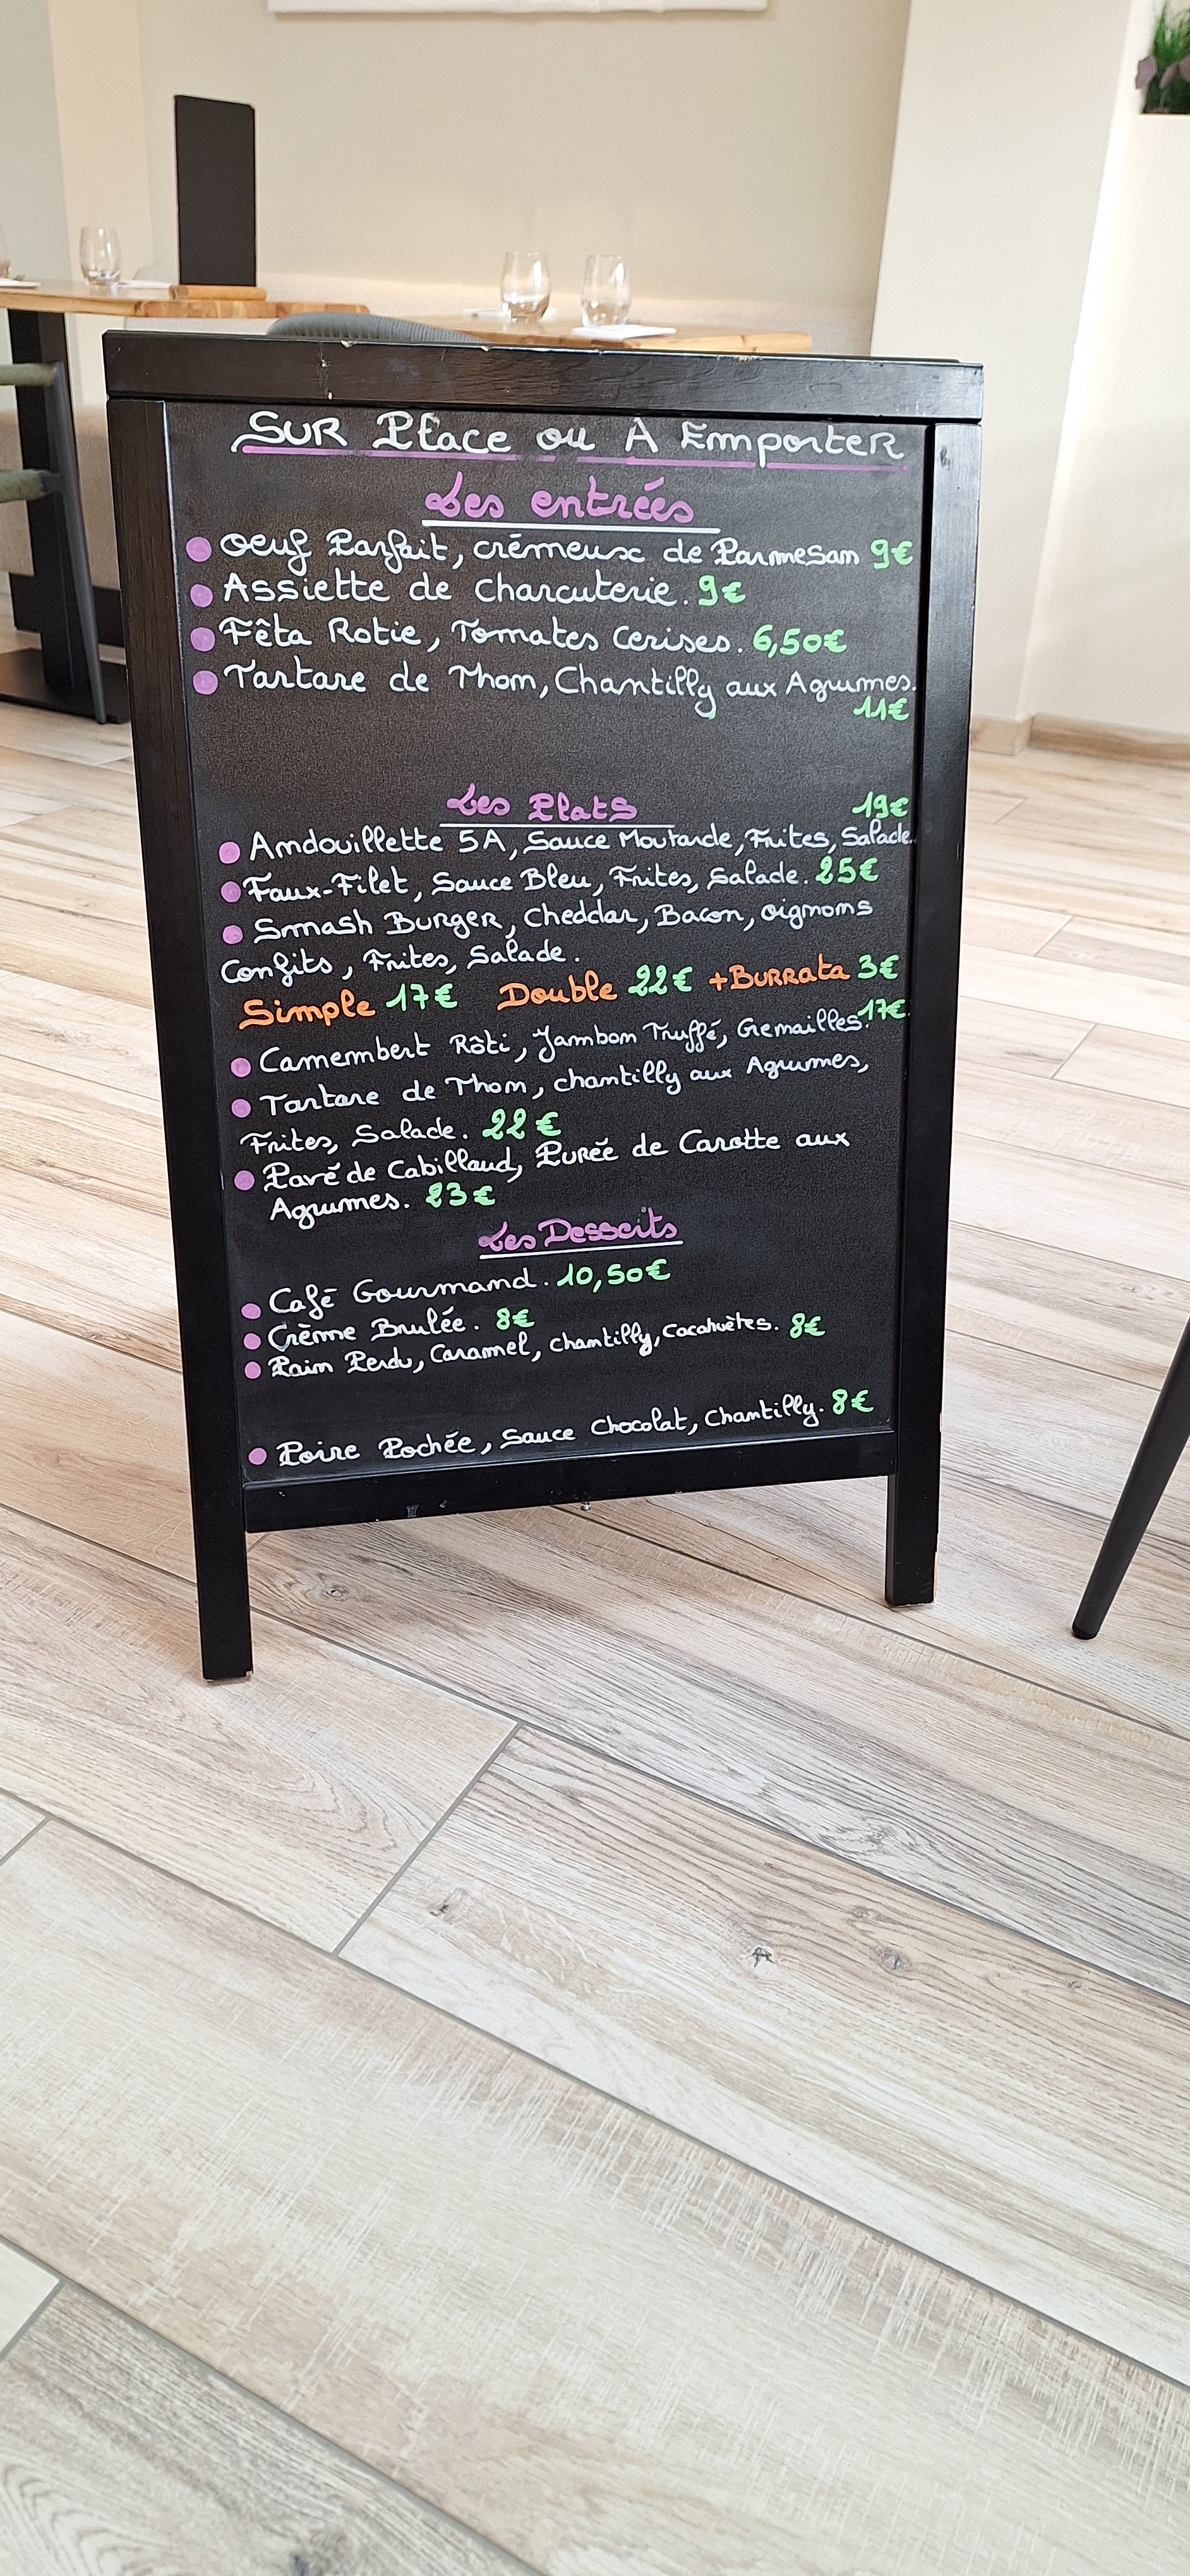 SUR Place ou A EmporteR
Les entrées
Oeuf Parfait, crémeux de Parmesan 9€
Assiette de Charcuterie. 9€
Fêta Rotie, Tomates Cerises. 6,50€
Tartare de Thon, Chantilly aux Agrumes.
11€
Les Plats 19€
Andouillette 5A, Sauce Moutarde, Frites, Salade.
Faux-Filet, Sauce Bleu, Frites, Salade. 25€
Smash Burger, Cheddar, Bacon, oignons
Confits, Frites, Salade.
Simple 17€ Double 22€ +Burrata 3€
Camembert Rôti, Jambon Truffé, Grenailles. 17€
Tartare de Thon, chantilly aux Agrumes,
Frites, Salade. 22€
Pavé de Cabillaud, Purée de Carotte aux
Agrumes. 23€
Les Desserts
Café Gourmand. 10,50€
Crème Brulée. 8€
Pain Perdu, Caramel, chantilly, Cacahuètes. 8€
Poire Pochée, Sauce Chocolat, Chantilly. 8€